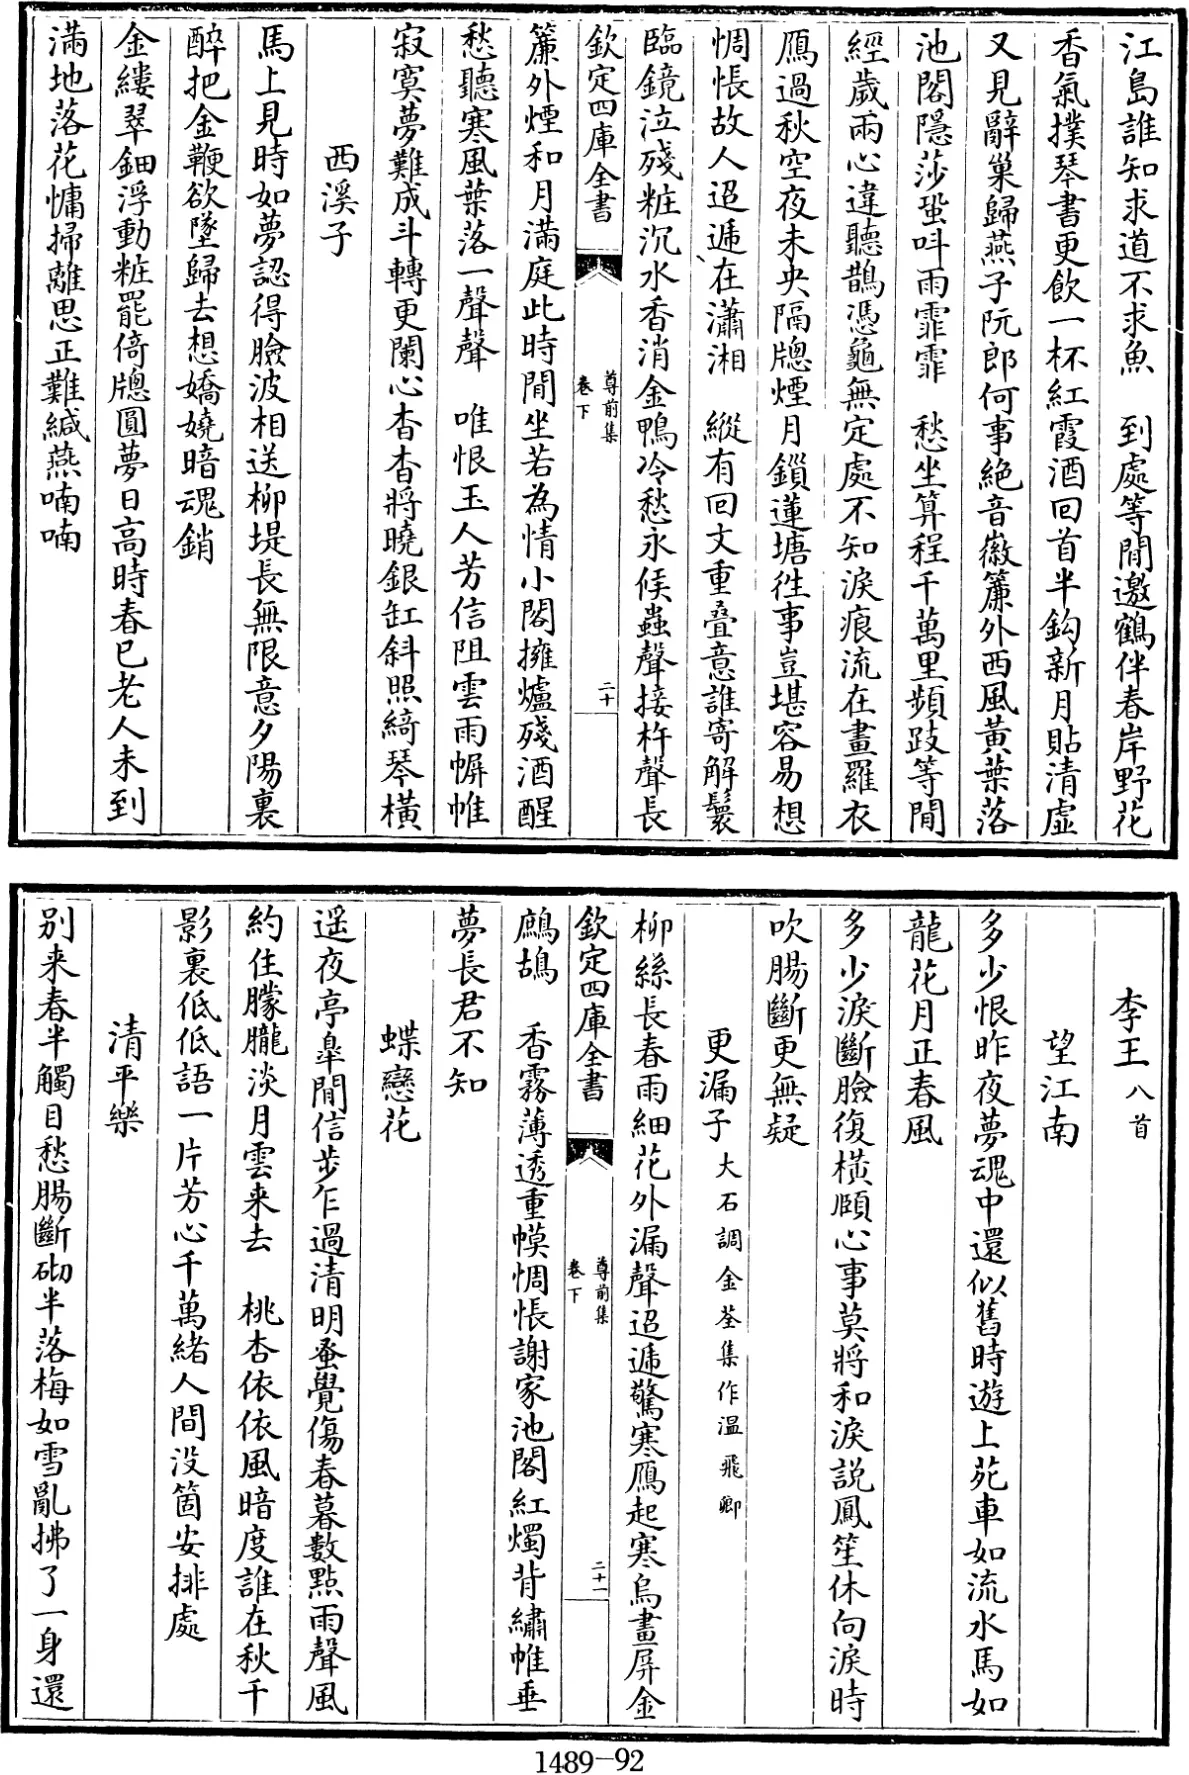 江島誰知求道不求魚　到處等閒邀鶴伴春岸野花
香氣撲琴書更飲一杯紅霞酒回首半鈎新月貼清虛
又見辭巢歸燕子阮郎何事絶音徽簾外西風黃葉落
池閣隱莎蛩呌雨霏霏　愁坐算程千萬里頻跂等閒
經歲兩心違聽鵲憑龜無定處不知淚痕流在畫羅衣
鴈過秋空夜未央隔牕煙月鎻蓮塘徃事豈堪容易想
惆悵故人迢遞在瀟湘　縱有回文重叠意誰寄解鬟
臨鏡泣殘粧沉水香消金鴨冷愁永候蟲聲接杵聲長
欽定四庫全書
尊前集
卷下
二十
簾外煙和月滿庭此時閒坐若為情小閣擁爐殘酒醒
愁聽寒風葉落一聲聲　唯恨玉人芳信阻雲雨幈帷
寂寞夢難成斗轉更闌心杳杳將曉銀缸斜照綺琴橫
西溪子
馬上見時如夢認得臉波相送柳堤長無限意夕陽裏
醉把金鞭欲墜歸去想嬌嬈暗魂銷
金縷翠鈿浮動粧罷倚牕圓夢日高時春已老人未到
滿地落花慵掃離思正難緘燕喃喃
李王八首
望江南
多少恨昨夜夢魂中還似舊時遊上苑車如流水馬如
龍花月正春風
多少淚斷臉復橫頤心事莫將和淚説鳳笙休向淚時
吹腸斷更無疑
更漏子大石調金荃集作温飛卿
柳絲長春雨細花外漏聲迢遞驚寒鴈起寒烏畫屏金
欽定四庫全書
尊前集
卷下
二十一
鷓鴣　香霧薄透重幙惆悵謝家池閣紅燭背繡帷垂
夢長君不知
蝶戀花
遥夜亭臯閒信步乍過清明蚤覺傷春暮數點雨聲風
約住朦朧淡月雲来去　桃杏依依風暗度誰在秋千
影裏低低語一片芳心千萬緒人間没箇安排處
清平樂
别来春半觸目愁腸斷砌半落梅如雪亂拂了一身還
1489-92